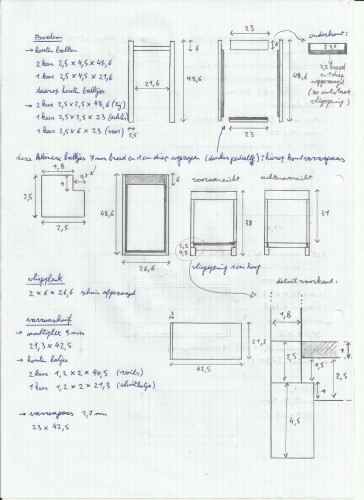 Bodem
→ houten balken
2 keer 2,5 x 4,5 x 48,6
1 keer 2,5 x 4,5 x 21,6
daarop houten balkjes
→ 2 keer 2,5 x 2,5 x 48,6 (zij)
1 keer 2,5 x 2,5 x 23 (achter)
1 keer 2,5 x 6 x 23 (voor)
21,6
6
48,6
2,5
23
6
48,6
23
onderkant:
2,5 breed
en 1 diep
vliegspleet)
deze kleinere balkjes 7 mm breed en 1 cm diep
(donker gedeelte):
1,8
0,7
1
2,5
2,5
6
48,6
26,6
vooraanzicht
38
2,5
4,5
achteraanzicht
31
vliegopening 1 cm hoog
vliegplank
2 x 6 x 26,6 schuin afgezaagd
varroaschuif
→ multiplex 9 mm
21,3 x 42,5
→ houten balkjes
2 keer 1,2 x 2 x 40,5
1 keer 1,2 x 2 x 21,3
→ varroagaas 2,7 mm
23 x 42,5
3
21,3
42,5
detail voorkant:
1,8
2,5
1
1,5
2,5
1
4,5